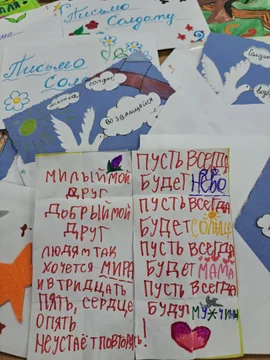 Письмо
Солдату
Письмо
возвращайся
МИЛЫЙ МОЙ
ДРУГ
ДОБРЫЙ МОЙ
ДРУГ
ЛЮДЯМ ТАК
ХОЧЕТСЯ МИРА
И В ТРИДЦАТЬ
ПЯТЬ, СЕРДЦЕ
ОПЯТЬ
НЕ УСТАЁТ ПОВТОРЯТЬ!
ПУСТЬ ВСЕГДА
БУДЕТ НЕБО
ПУСТЬ ВСЕГДА
БУДЕТ СОЛНЦЕ
ПУСТЬ ВСЕГДА
БУДЕТ МАМА
ПУСТЬ ВСЕГДА
БУДУТ МУЖЧИНЫ